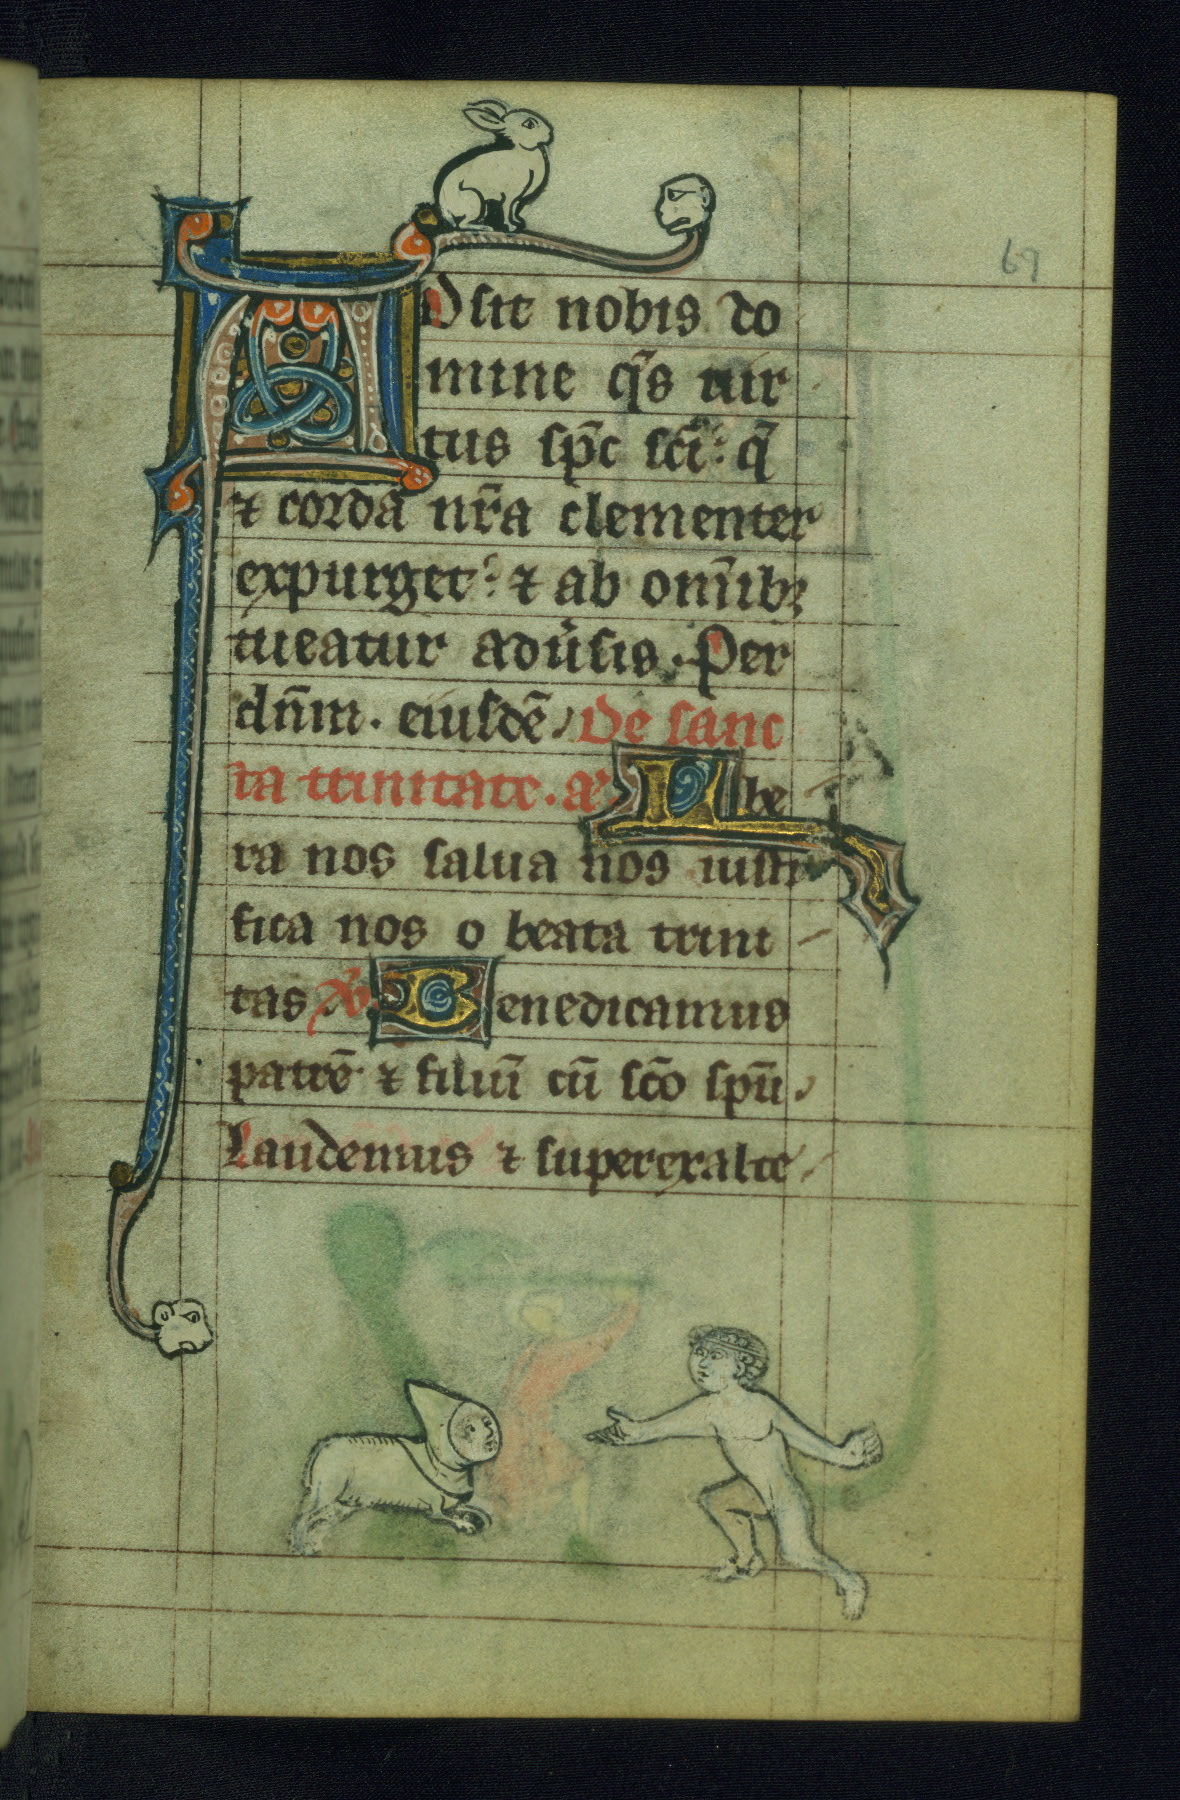 69
Adsit nobis do
mine q̃s uir
tus sp̃c sc̃i: q̃
⁊ corda nr̃a clementer
expurget: ⁊ ab om̃ibꝫ
tueatur adũsis. Per
dñm. eiusdẽ. De sanc
ta trinitate. añ Libe
ra nos salua nos iusti
fica nos o beata trini
tas Benedicamus
patrẽ ⁊ filiũ cũ sc̃o sp̃u.
Laudemus ⁊ superexalte